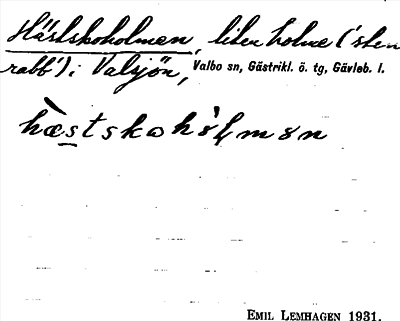 Hästskoholmen, liten holme ('sten
rabb') i Valsjön, Valbo sn, Gästrikl. ö. tg, Gävleb. l.
hæstskohålmən
EMIL LEMHAGEN 1931.